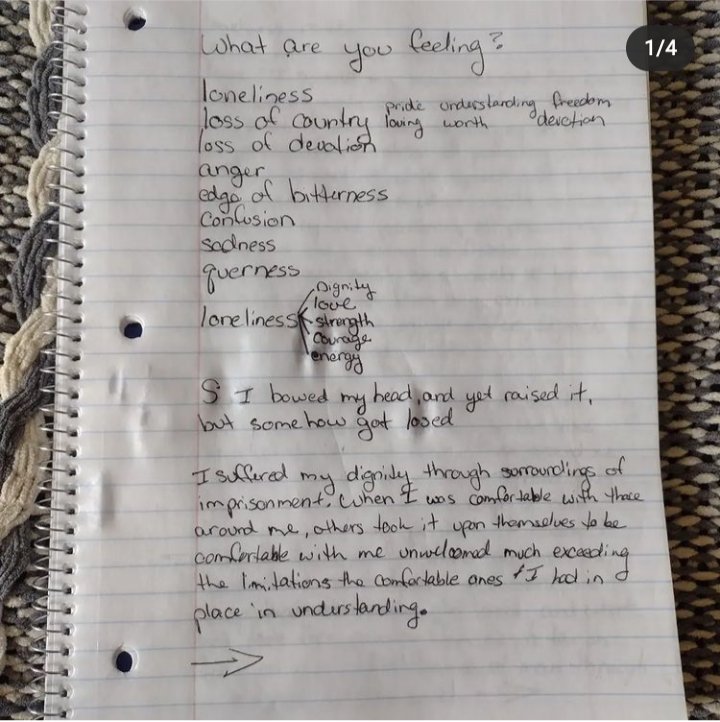 1/4
What are you feeling?
loneliness
loss of country pride understanding freedom
loving worth devotion
loss of devotion
anger
edge of bitterness
Confusion
sadness
querness
Dignity
love
loneliness strength
Courage
energy
S I bowed my head, and yet raised it,
but somehow got losed
I suffered my dignity through sorroundings of
imprisonment. When I was comfortable with those
around me, others took it upon themselves to be
comfortable with me unwelcomed much exceeding
the limitations the comfortable ones & I had in
place in understanding.